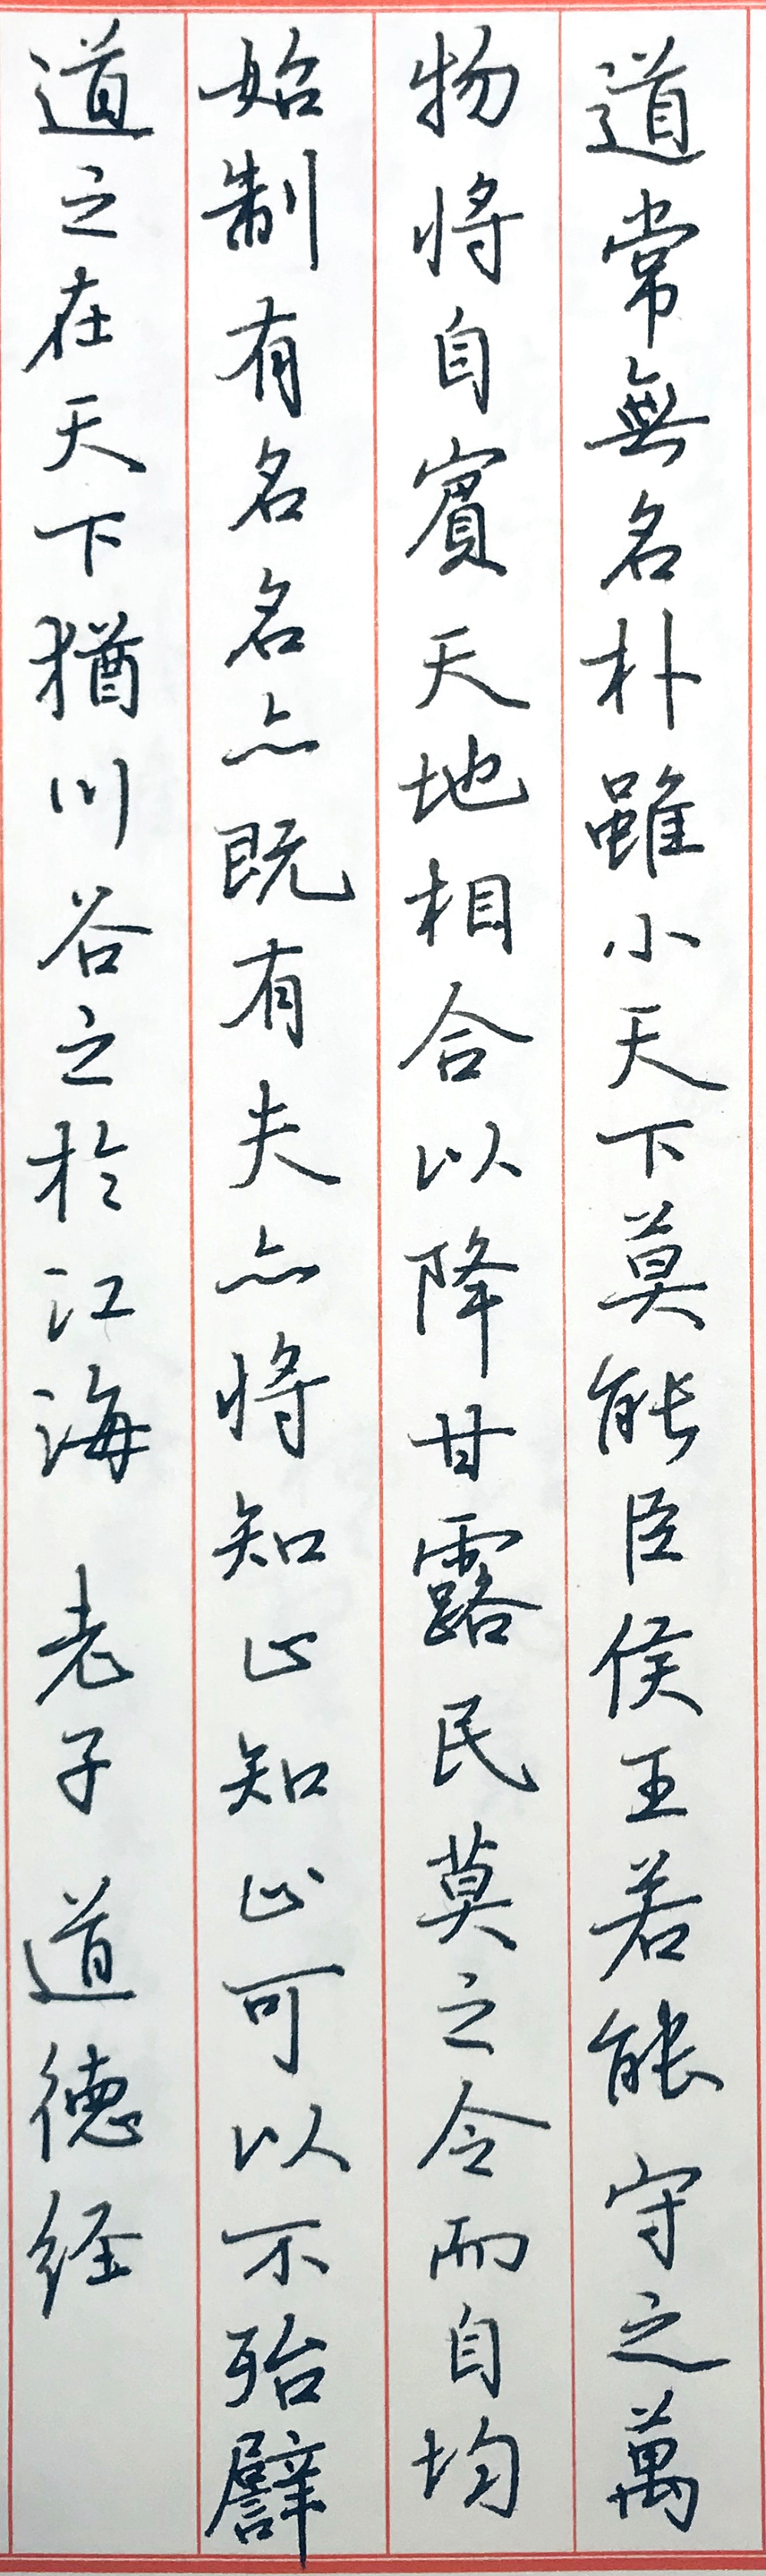 道常無名朴雖小天下莫能臣侯王若能守之萬
物将自賓天地相合以降甘露民莫之令而自均
始制有名名亦既有夫亦将知止知止可以不殆譬
道之在天下猶川谷之於江海 老子 道德经